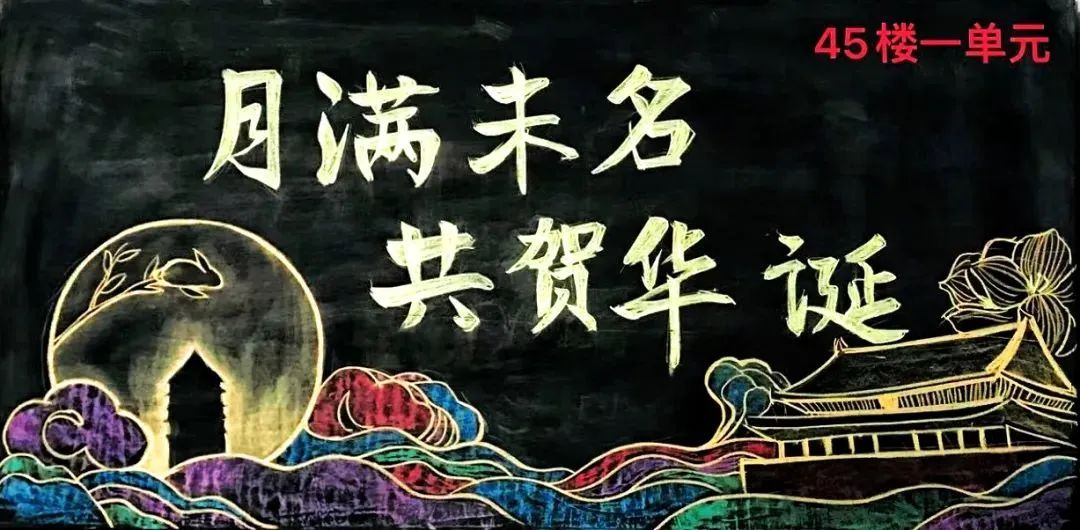 45楼一单元
月满未名
共贺华诞